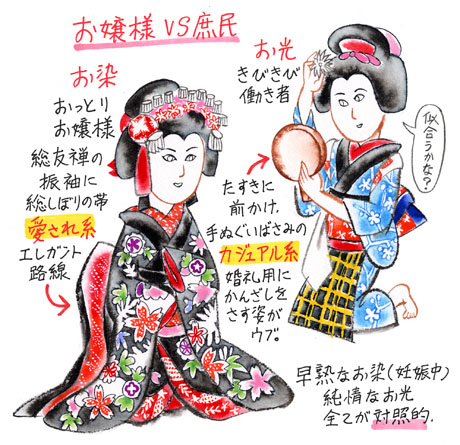 お嬢様 VS 庶民
お染
おっとり
お嬢様
総友禅の
振袖に
総しぼりの帯
愛され系
エレガント
路線
お光
きびきび
働き者
似合うかな?
たすきに
前かけ.
手ぬぐいばさみの
カジュアル系
婚礼用に
かんざしを
さす姿が
ウブ。
早熟なお染(妊娠中)
純情なお光
全てが対照的.